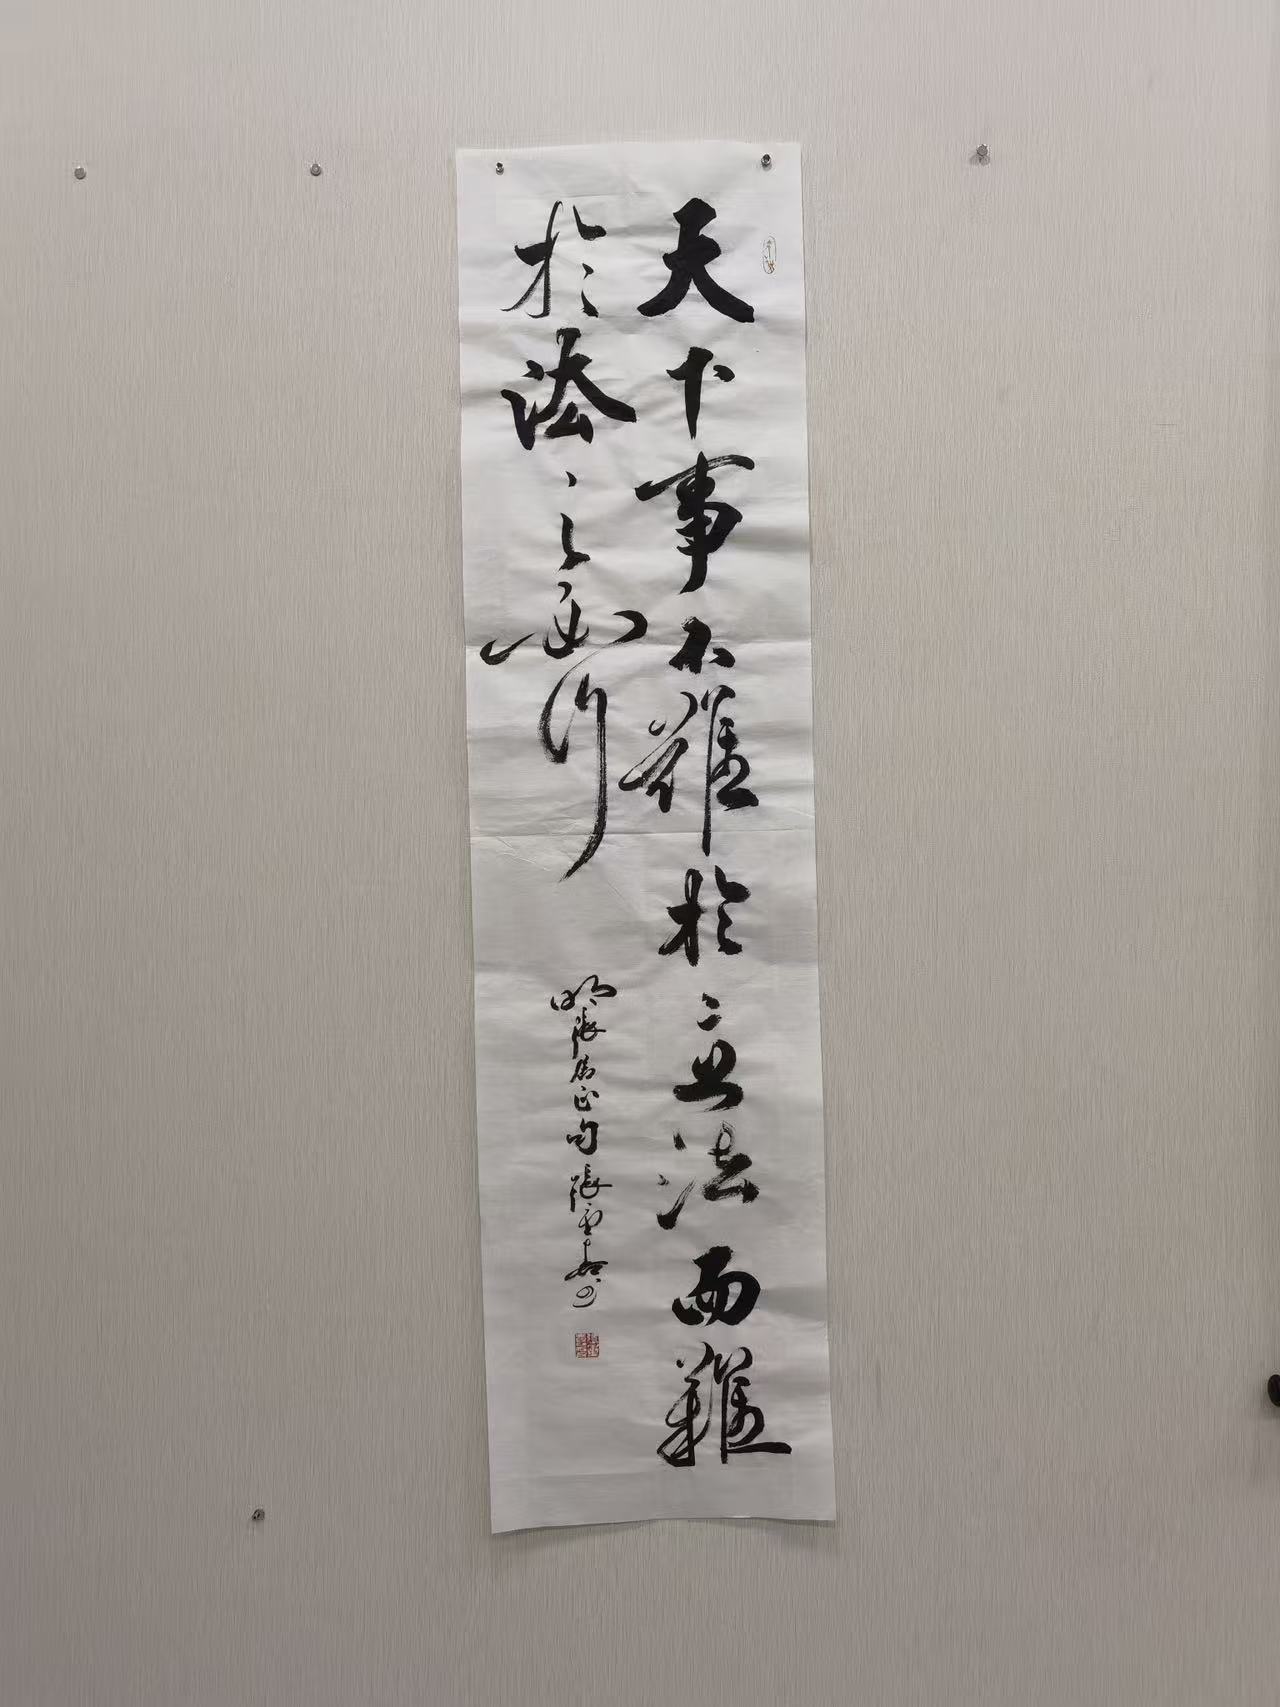 天下事不難於立法而難
於法之必行
明張居正句 張